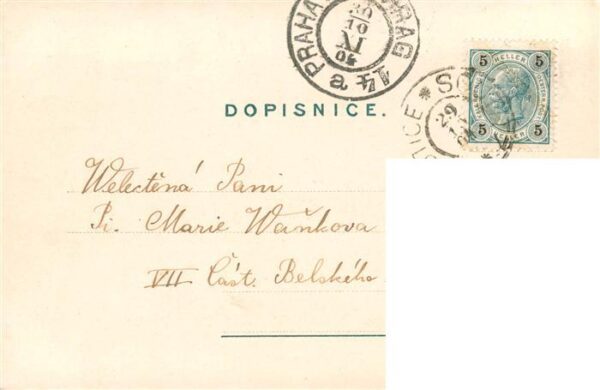 PRAHA PRAG
30
10
XI
04
DOPISNICE.
5 HELLER 5
5 HELLER 5
29
Welectěná Pani
Pí. Marie Waňkova
VII Část. Belského